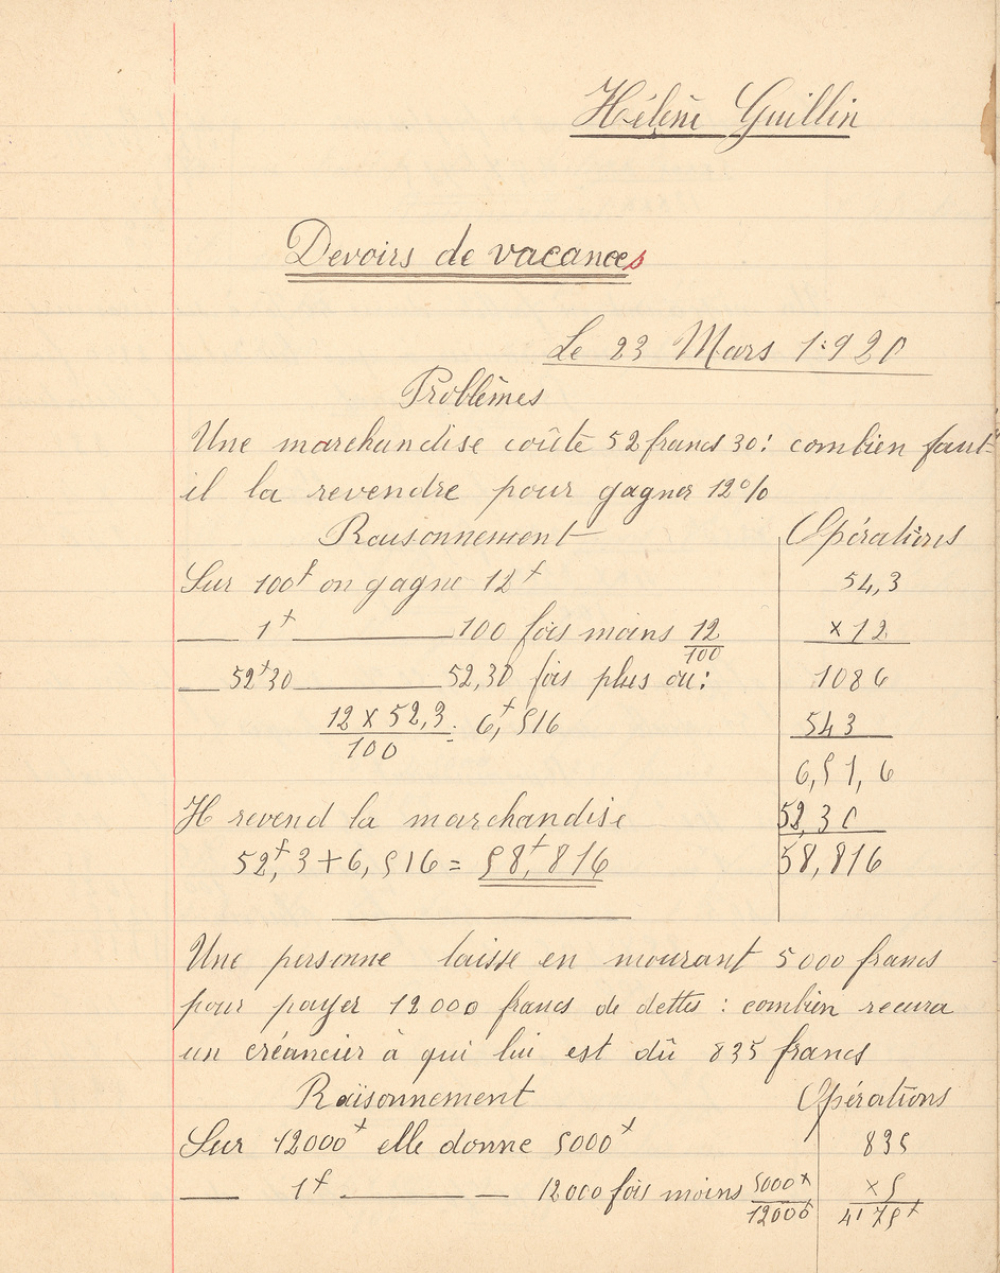 Hélène Guillin
Devoirs de vacances
Le 23 Mars 1920
Problèmes
Une marchandise coûte 52 francs 30 : combien faut-
il la revendre pour gagner 12 %
Raisonnement
Opérations
Sur 100f on gagne 12f
54,3
— 1f — 100 fois moins 12/100
x 12
— 52f30 — 52,30 fois plus ou :
1086
12 x 52,3 / 100 = 6f,516
543
6,51,6
Il revend la marchandise
52,30
52f,3 + 6,516 = 58f,816
58,816
Une personne laisse en mourant 5000 francs
pour payer 12000 francs de dettes : combien recevra
un créancier à qui lui est dû 835 francs
Raisonnement
Opérations
Sur 12000f elle donne 5000f
835
— 1f — — 12000 fois moins 5000f/12000
x 5
4175f